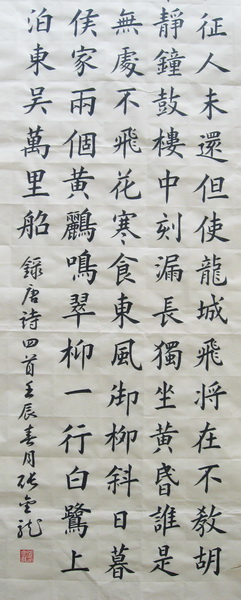 征人未還但使龍城飛將在不教胡
靜鐘鼓樓中刻漏長獨坐黃昏誰是
無處不飛花寒食東風御柳斜日暮
侯家兩個黃鸝鳴翠柳一行白鷺上
泊東吳萬里船 錄唐詩四首壬辰春月張金龍